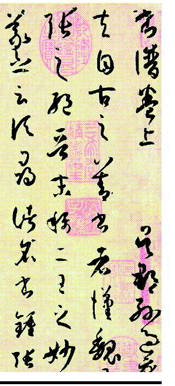 書譜卷上 吳郡孫過庭
夫自古之善書者漢魏
張之絕晉末稱二王之妙
羲之云頃尋諸名書鍾張